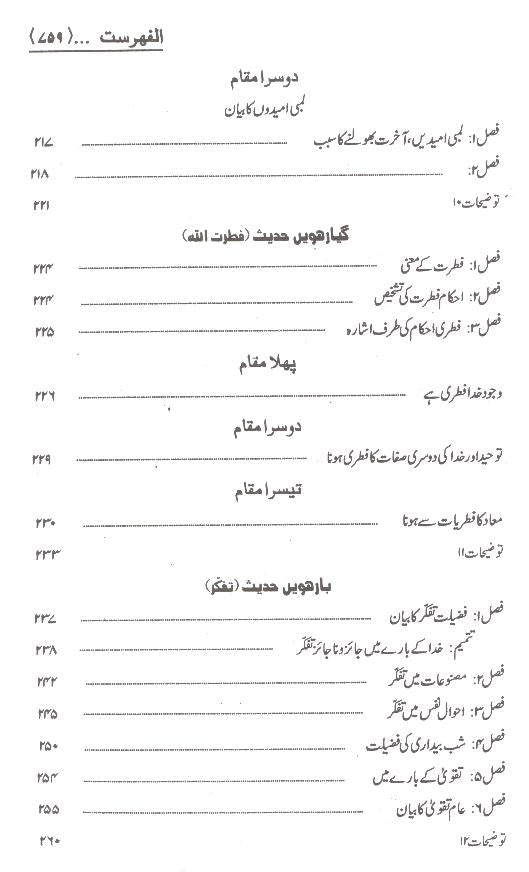 الفهرست ...﴿۷۵۹﴾
دوسرا مقام
لمبی امیدوں کا بیان
فصل ۱: لمبی امیدیں، آخرت بھولنے کا سبب ۲۱۷
فصل ۲: ۲۱۸
توضیحات ۱۰ ۲۲۱
گیارھویں حدیث (فطرت اللہ)
فصل ۱: فطرت کے معنی ۲۲۴
فصل ۲: احکام فطرت کی تشخیص ۲۲۴
فصل ۳: فطری احکام کی طرف اشارہ ۲۲۵
پہلا مقام
وجود خدا فطری ہے ۲۲۶
دوسرا مقام
توحید اور خدا کی دوسری صفات کا فطری ہونا ۲۲۹
تیسرا مقام
معاد کا فطریات سے ہونا ۲۳۰
توضیحات ۱۱ ۲۳۳
بارھویں حدیث (تفکّر)
فصل ۱: فضیلت تفکّر کا بیان ۲۳۷
تتمیم: خدا کے بارے میں جائز و ناجائز تفکّر ۲۳۸
فصل ۲: مصنوعات میں تفکّر ۲۴۲
فصل ۳: احوال نفس میں تفکّر ۲۴۵
فصل ۴: شب بیداری کی فضیلت ۲۵۰
فصل ۵: تقویٰ کے بارے میں ۲۵۴
فصل ۶: عام تقویٰ کا بیان ۲۵۵
توضیحات ۱۲ ۲۶۰